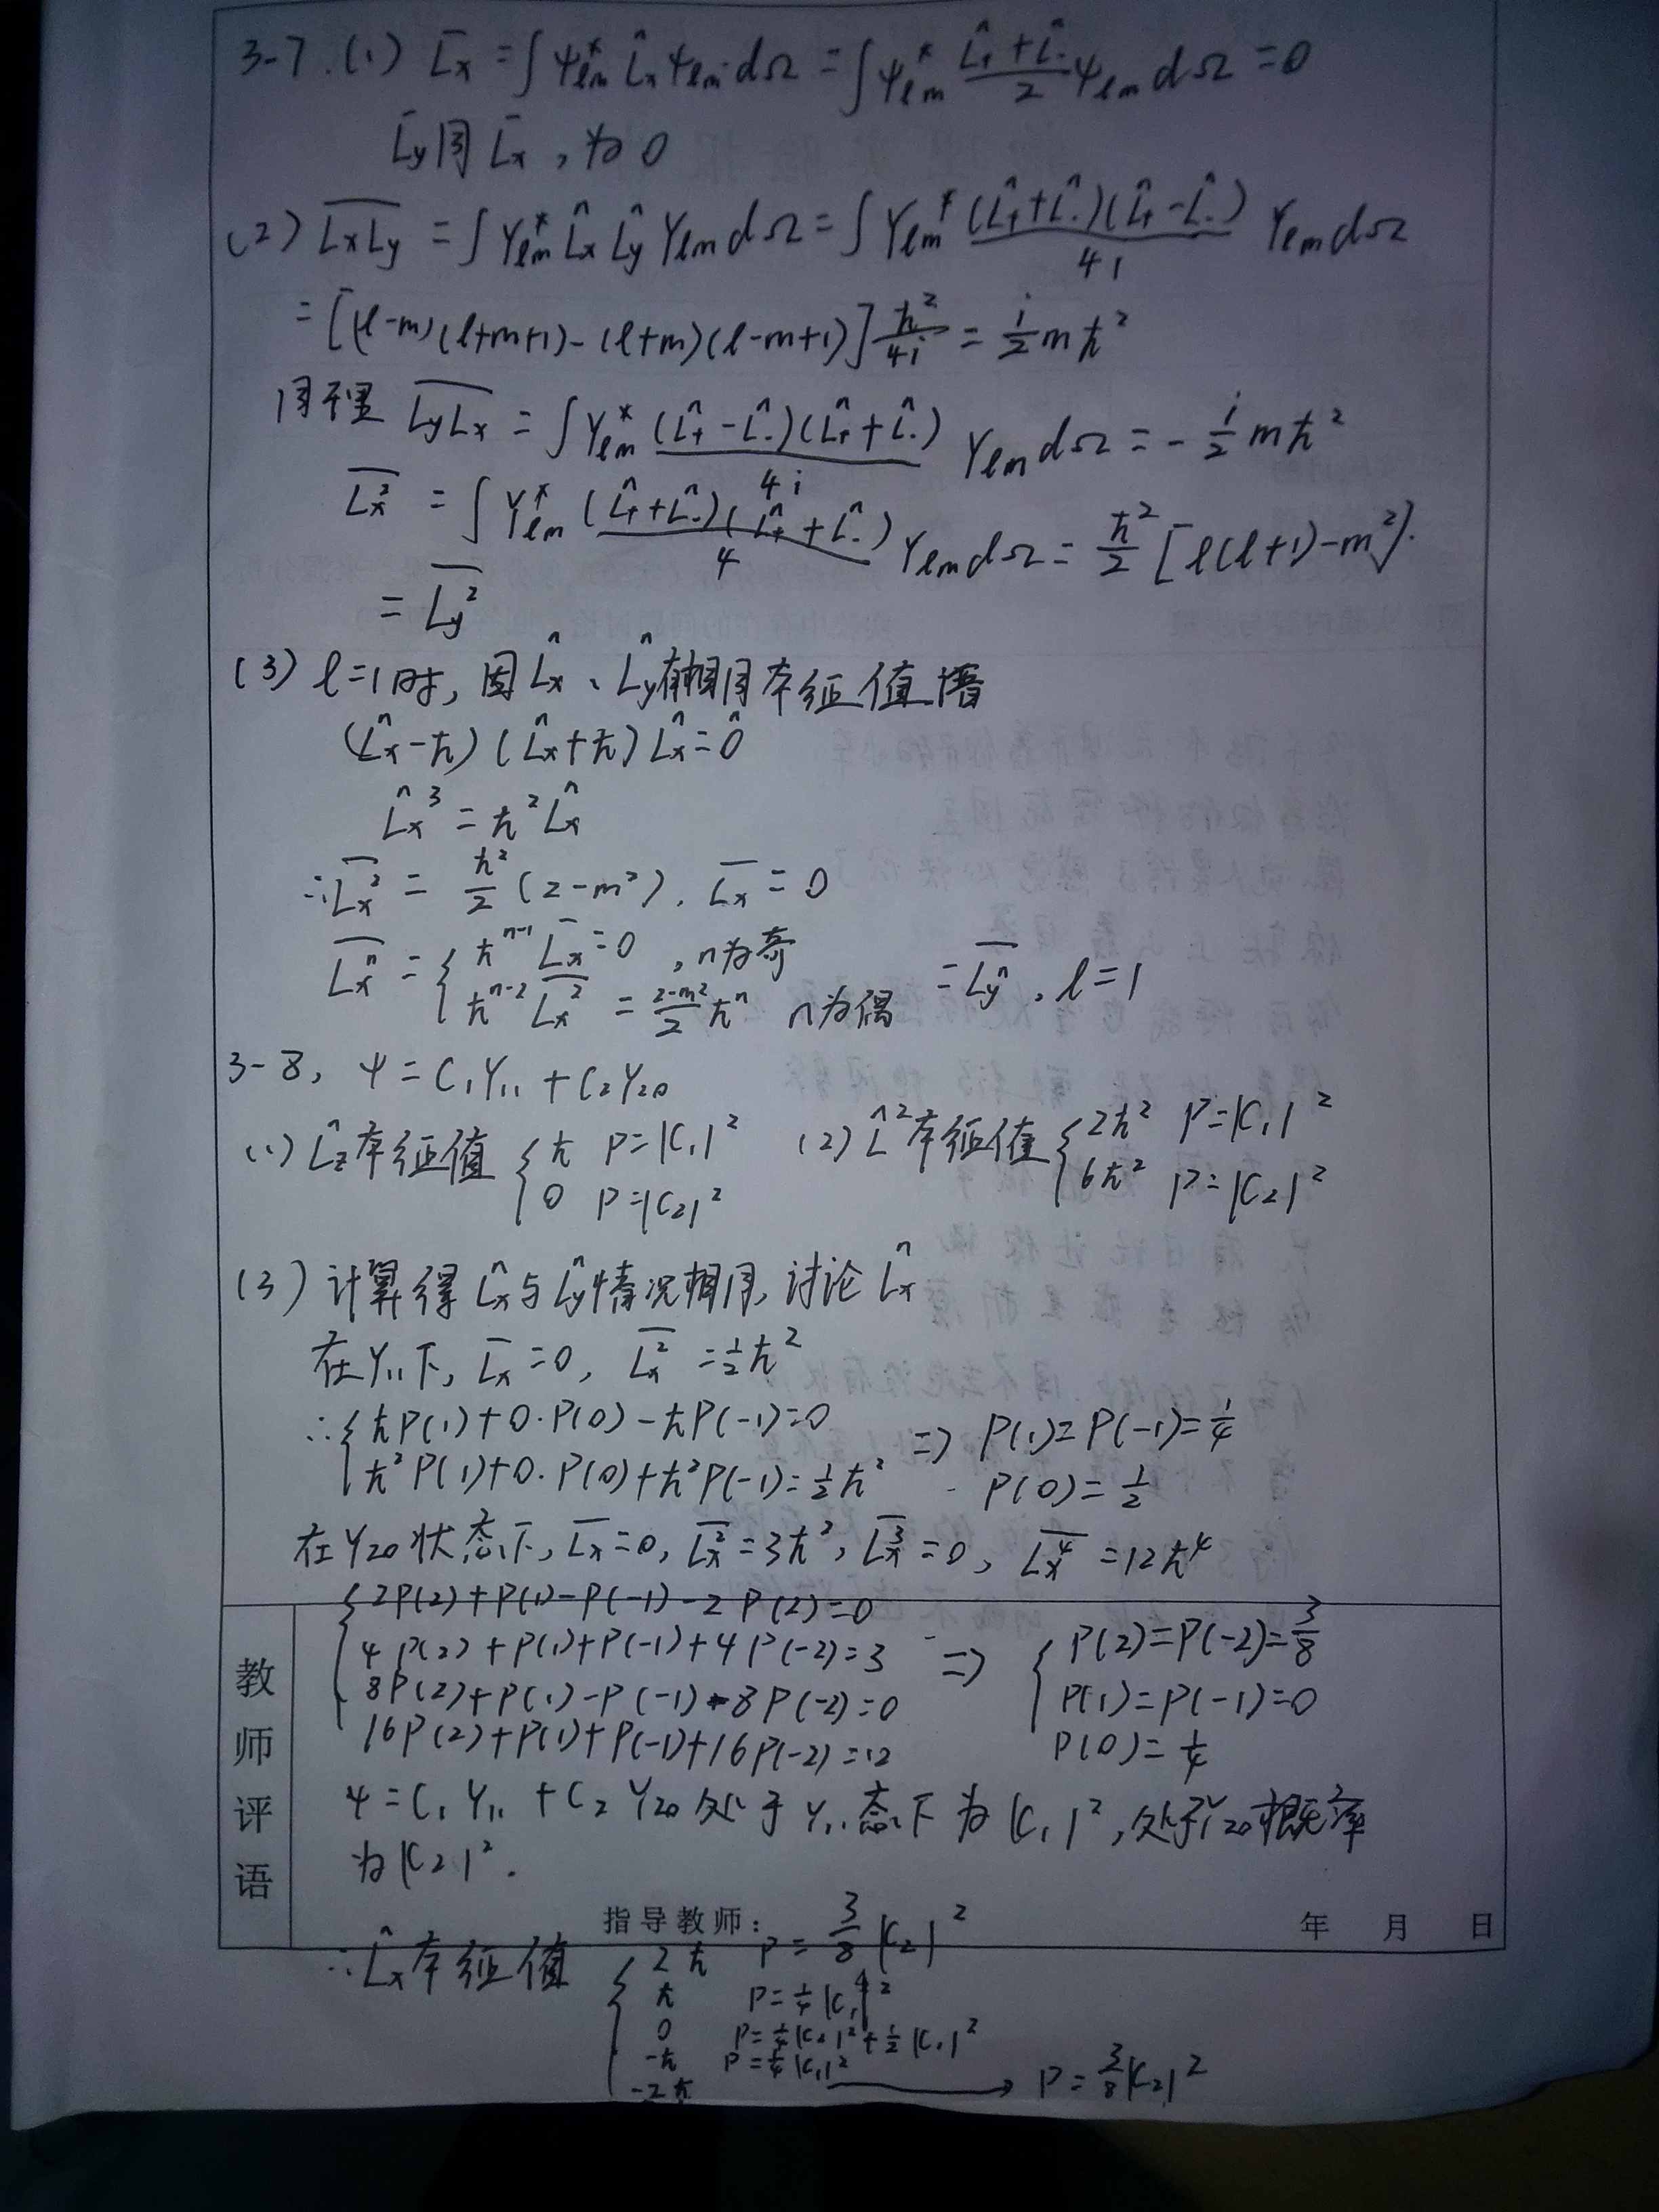 3-7.(1) \overline{L_x} = ∫ψ*_{lm} \hat{L}_x ψ_{lm} dΩ = ∫ψ*_{lm} \frac{\hat{L}_+ + \hat{L}_-}{2} ψ_{lm} dΩ = 0
\overline{L_y}同\overline{L_x}，为0
(2) \overline{L_xL_y} = ∫Y*_{lm} \hat{L}_x \hat{L}_y Y_{lm} dΩ = ∫Y*_{lm} \frac{(\hat{L}_+ + \hat{L}_-)(\hat{L}_+ - \hat{L}_-)}{4i} Y_{lm} dΩ
= [(l-m)(l+m+1)-(l+m)(l-m+1)] \frac{ħ^2}{4i} = \frac{i}{2} mħ^2
同理 \overline{L_yL_x} = ∫Y*_{lm} \frac{(\hat{L}_+ - \hat{L}_-)(\hat{L}_+ + \hat{L}_-)}{4i} Y_{lm} dΩ = -\frac{i}{2} mħ^2
\overline{L_x^2} = ∫Y*_{lm} \frac{(\hat{L}_+ + \hat{L}_-)(\hat{L}_+ + \hat{L}_-)}{4} Y_{lm} dΩ = \frac{ħ^2}{2} [l(l+1)-m^2].
= \overline{L_y^2}
(3) l=1时, 因\hat{L}_x、\hat{L}_y有相同本征值谱
(\hat{L}_x-ħ)(\hat{L}_x+ħ)\hat{L}_x=\hat{0}
\hat{L}_x^3 = ħ^2\hat{L}_x
∴\overline{L_x^2} = \frac{ħ^2}{2}(2-m^2). \overline{L_x} = 0
\overline{L_x^n} = { ħ^{n-1}\overline{L_x}=0 , n为奇
ħ^{n-2}\overline{L_x^2} = \frac{2-m^2}{2}ħ^n n为偶 = \overline{L_y^n}, l=1
3-8, ψ = C_1Y_{11} + C_2Y_{20}
(1) \hat{L}_z本征值 { ħ P=|C_1|^2 (2) \hat{L}^2本征值 { 2ħ^2 P=|C_1|^2
0 P=|C_2|^2 6ħ^2 P=|C_2|^2
(3) 计算得\hat{L}_x与\hat{L}_y情况相同, 讨论\hat{L}_x
在Y_{11}下, \overline{L_x}=0, \overline{L_x^2} = \frac{1}{2}ħ^2
∴ { ħP(1)+0·P(0)-ħP(-1)=0 => P(1)=P(-1)=\frac{1}{4}
ħ^2P(1)+0·P(0)+ħ^2P(-1)=\frac{1}{2}ħ^2 P(0)=\frac{1}{2}
在Y_{20}状态下, \overline{L_x}=0, \overline{L_x^2}=3ħ^2, \overline{L_x^3}=0, \overline{L_x^4}=12ħ^4
{ 2P(2)+P(1)-P(-1)-2P(2)=0
4P(2)+P(1)+P(-1)+4P(-2)=3 => { P(2)=P(-2)=\frac{3}{8}
8P(2)+P(1)-P(-1)-8P(-2)=0 P(1)=P(-1)=0
16P(2)+P(1)+P(-1)+16P(-2)=12 P(0)=\frac{1}{4}
教师评语
ψ=C_1Y_{11}+C_2Y_{20}处于Y_{11}态下为|C_1|^2, 处于Y_{20}概率
为|C_2|^2.
指导教师： 年 月 日
∴\hat{L}_x本征值 { 2ħ P=\frac{3}{8}|C_2|^2
ħ P=\frac{1}{4}|C_1|^2
0 P=\frac{1}{4}|C_2|^2+\frac{1}{2}|C_1|^2
-ħ P=\frac{1}{4}|C_1|^2
-2ħ → P=\frac{3}{8}|C_2|^2